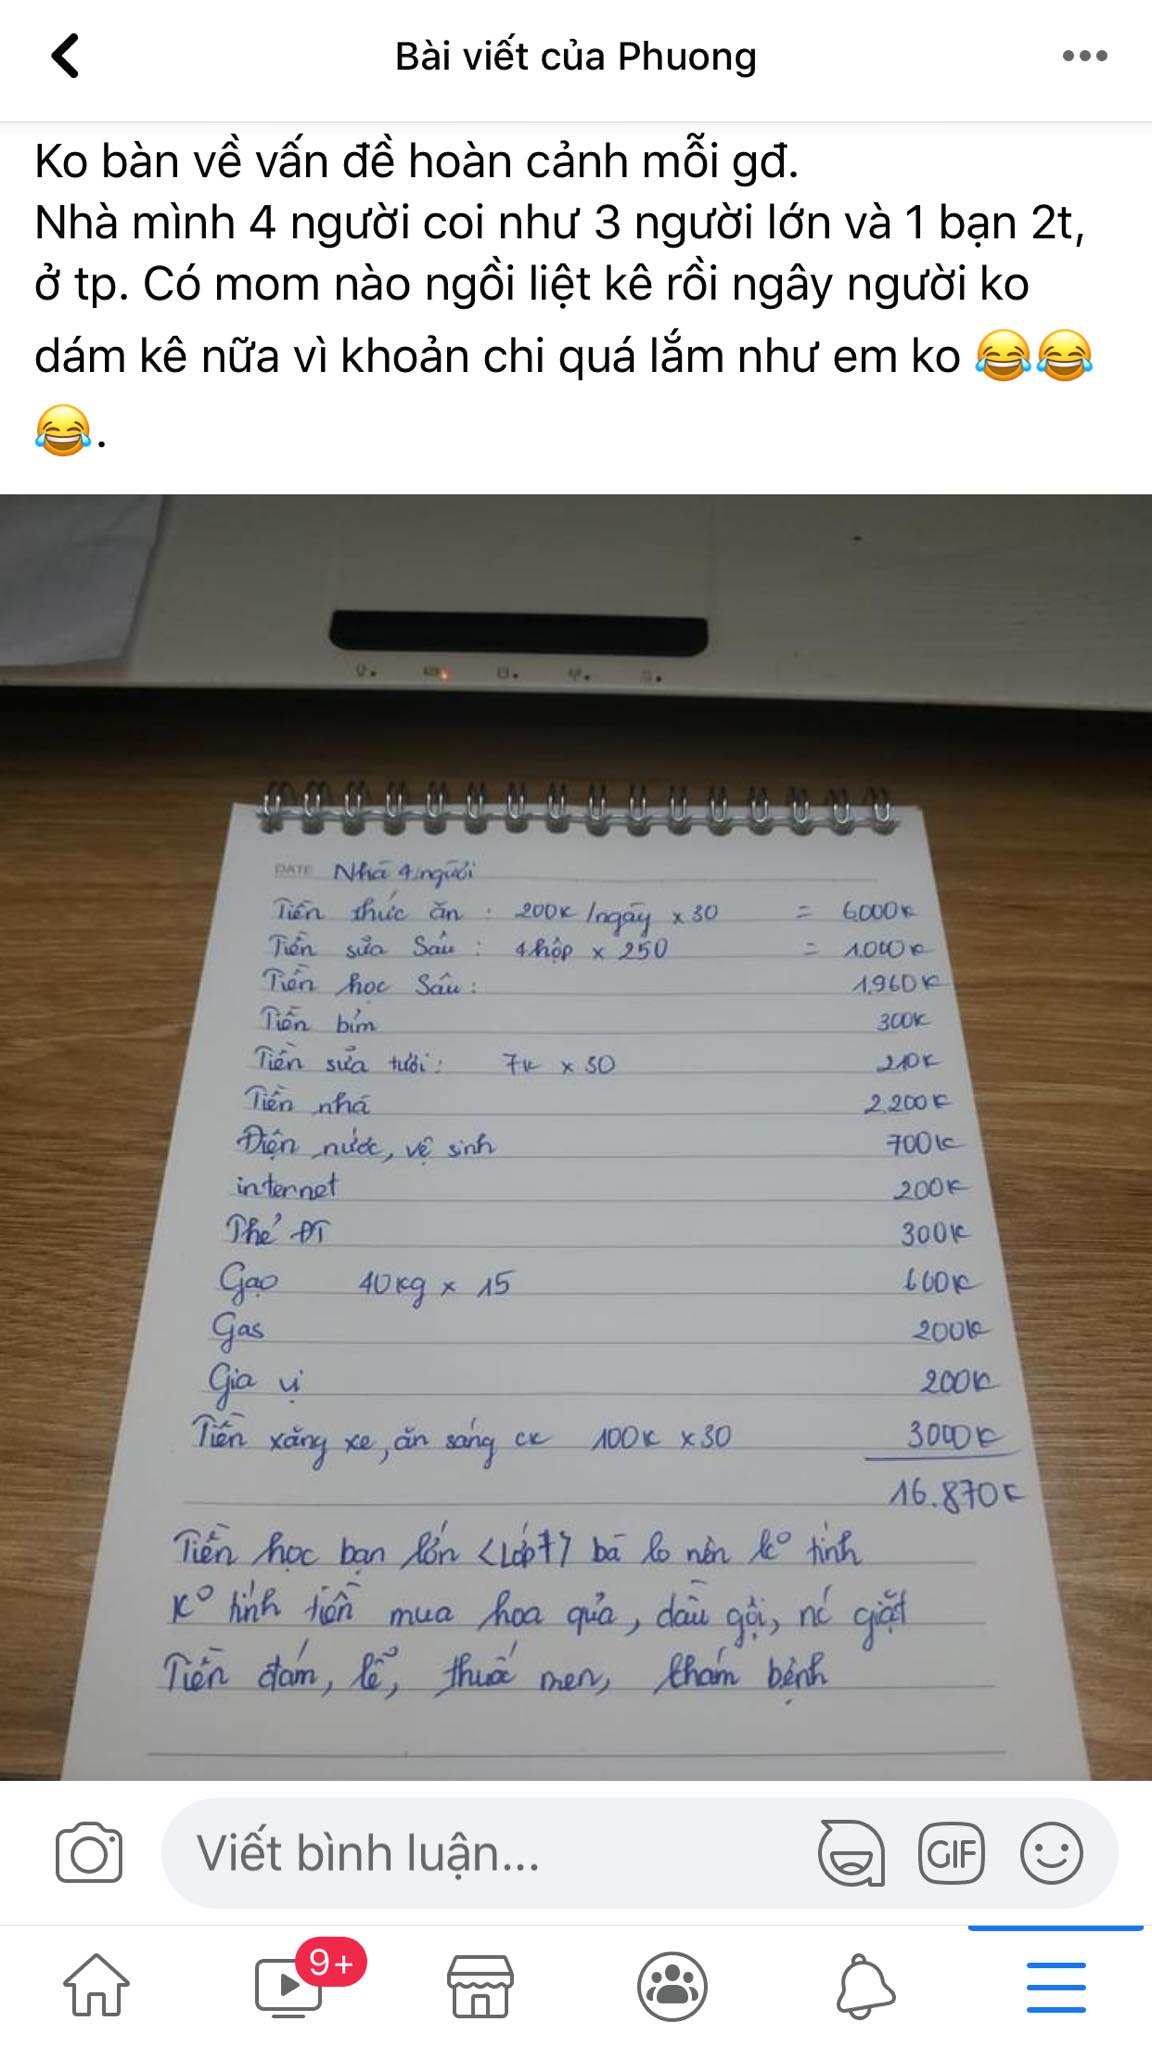 Bài viết của Phuong
Ko bàn về vấn đề hoàn cảnh mỗi gđ.
Nhà mình 4 người coi như 3 người lớn và 1 bạn 2t,
ở tp. Có mom nào ngồi liệt kê rồi ngây người ko
dám kê nữa vì khoản chi quá lắm như em ko 😂😂
😂.
DATE Nhà 4 người
Tiền thức ăn : 200K /ngày x 30 = 6000K
Tiền sữa Sâu : 4 hộp x 250 = 1.000K
Tiền học Sâu : 1.960K
Tiền bỉm 300K
Tiền sữa tươi : 7K x 30 210K
Tiền nhà 2.200K
Điện nước, vệ sinh 700K
internet 200K
Thẻ ĐT 300K
Gạo 40kg x 15 600K
Gas 200K
Gia vị 200K
Tiền xăng xe, ăn sáng ck 100K x 30 3000K
16.870K
Tiền học bạn lớn <Lớp 7> bà lo nên k° tính
K° tính tiền mua hoa quả, dầu gội, nc giặt
Tiền đám, lễ, thuốc men, khám bệnh
Viết bình luận...
GIF
9+